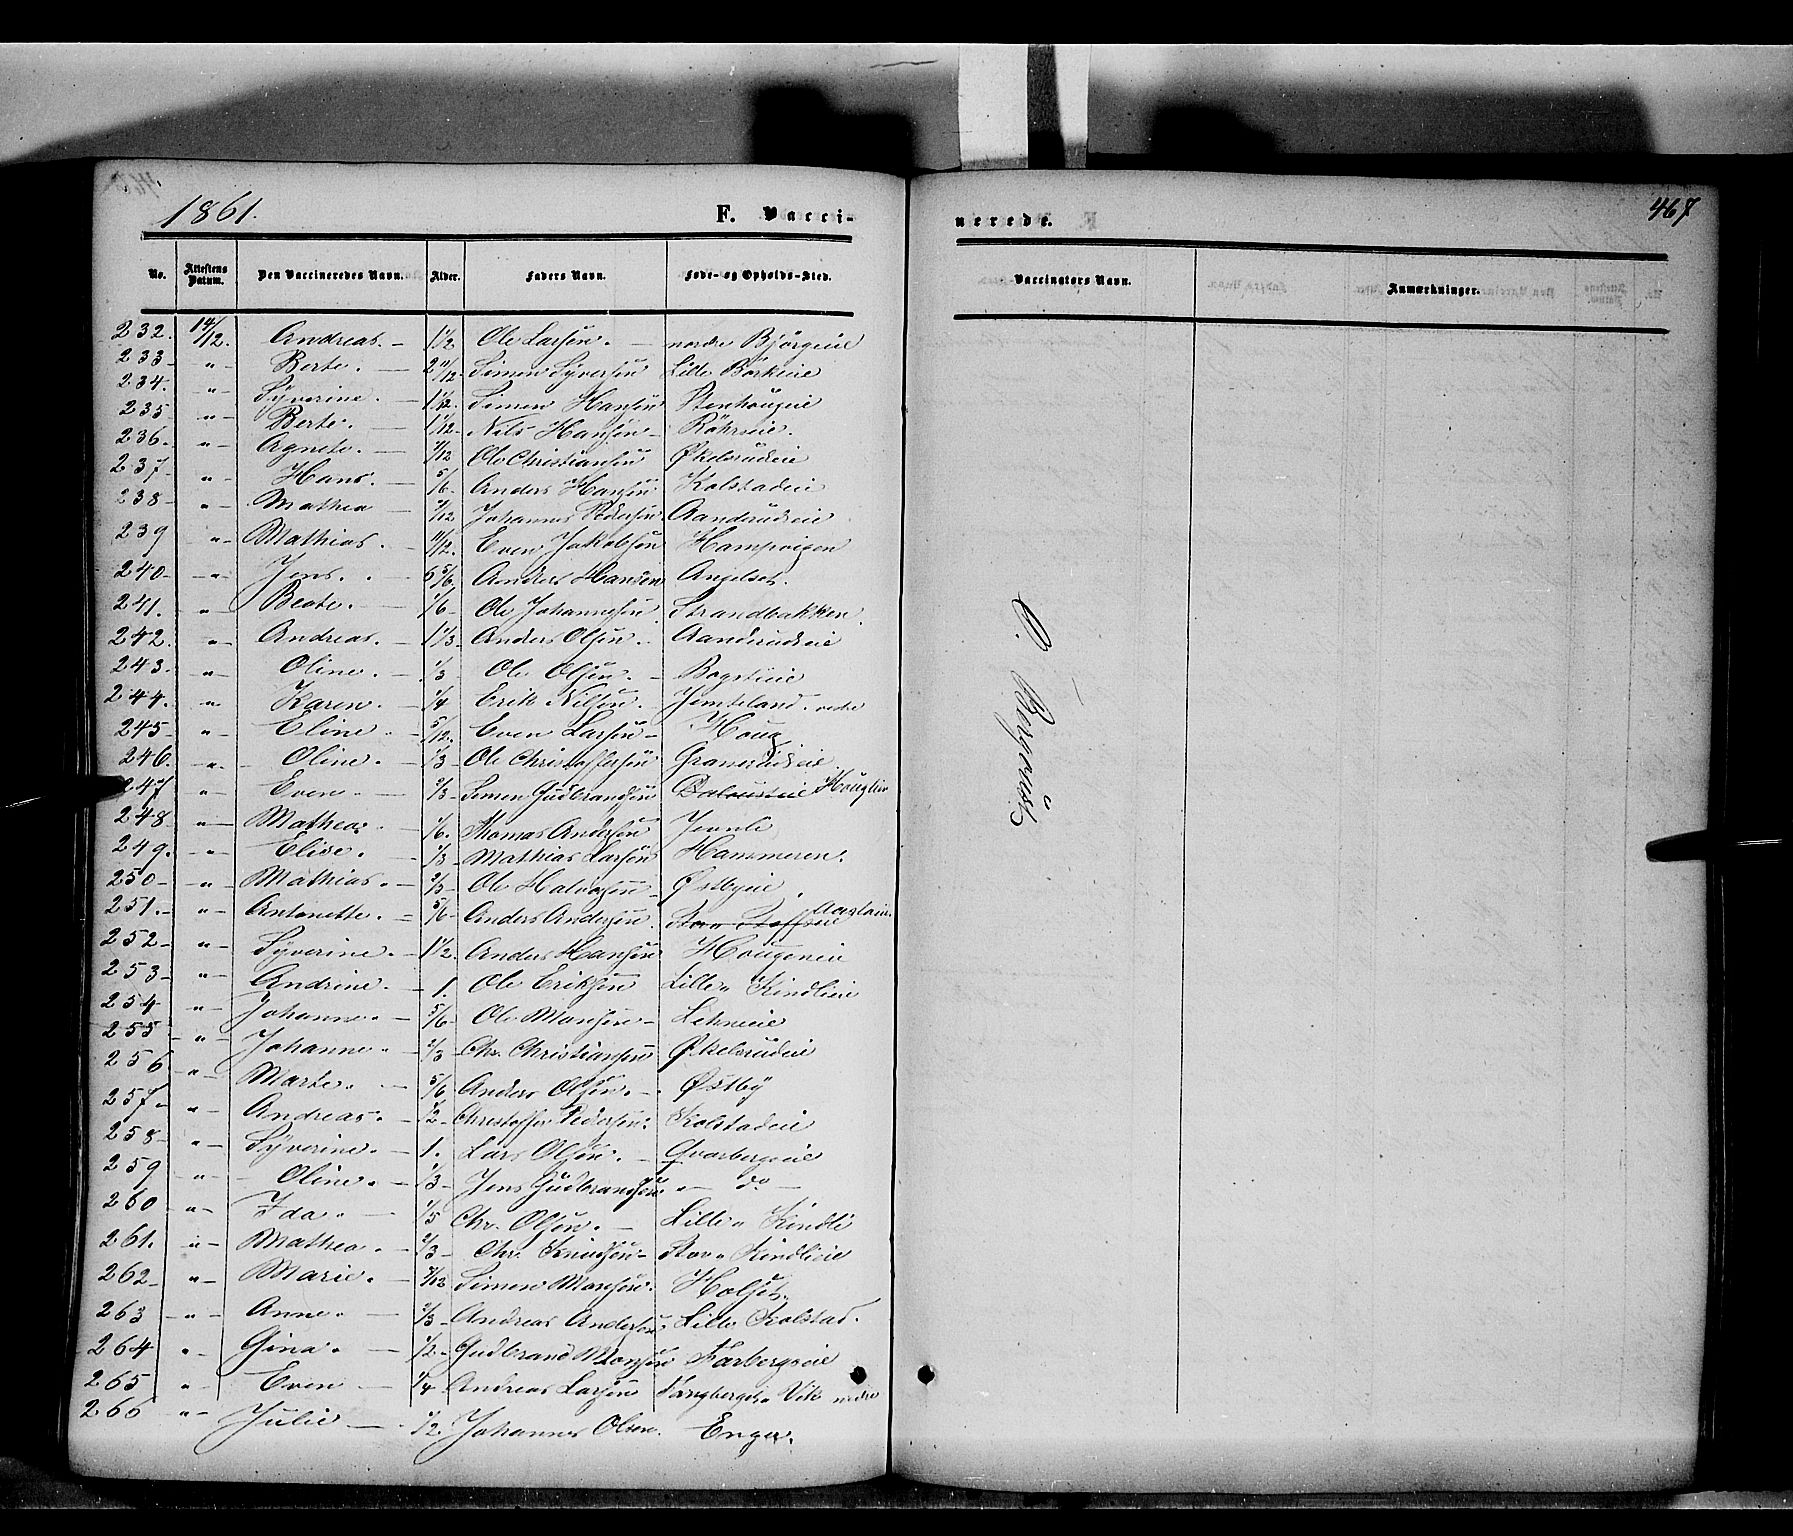 1861. F. Vacci-
No. Attestens Datum. Den Vaccineredes Navn. Alder. Faders Navn. Føde- og Opholds-Sted.
232. 14/12. Andreas. - 1 1/2 Ole Larsen. - nordre Bjørgeeie
233 - " - Berte. - 2 11/12 Simen Syversen Lille Børkeeie
234. - " - Syverine - 1 1/12. Simen Hansen Stenhougeie
235 - " - Berte. - 1 1/12 - Nils Hansen - Röhrseie.
236. - " - Agnete. - Ole Christiansen Økelsrudeie
237 - " - Hans. - 5/6. Anders Hansen Kolstadeie
238 - " - Mathea - Johannes Pedersen. Aanderudseie
239 " - Mathias. - 11/12. Even Jakobsen Hampvigen
240 - " - Jens. - 6 5/6. Anders Hansen Angelset.
241. - " - Beate. - 1/6 - Ole Johannesen Strandbakken.
242. - " - Andreas. - 1 1/3. Anders Olsen. - Aanderudseie
243. - " - Oline. - 1/3 Ole Olsen. - Bogstieie
244. - " - Karen. - 1/4 Erik Nilsen. - Jemtland. vestre
245 - " - Eline - 5/12. Even Larsen - Houg
246. - " - Oline. - 1/3 - Ole Christoffersen Granerudseie
247 " - Even. - 2/3 - Simen Gudbrandsen Houglien
248 - " - Mathea. - 1/6. Thomas Andersen Jevnli
249. - " - Elise. - 1/3 - Mathias Larsen Hammeren.
250 - " - Mathias. - 2/3 - Ole Halvorsen - Østbyeie
251. - " - Antonette. - 5/6 - Anders Andersen.
252 - " - Syverine. - 1 1/2. Anders Hansen Hougeneie
253 - " - Andrine. - 1. Ole Eriksen Lille " Kindlieie
254 - " - Johanne. - 5/6 - Ole Monsen - Lehneeie
255 - " - Johanne. - 2/3 - Chr. Christiansen Økelsrudeie
256 - " - Marte. - 5/6 Anders Olsen. - Østby
257. - " - Andreas. - 1/2 - Christoffer Pedersen. Kolstadeie
258 - " - Syverine. - 1. Lars Olsen. - Qvarbergseie
259 " - Oline. - 1/3 - Jens Gudbrandsen " - do -
260 " - Ida. - 1/5 Chr. Olsen. - Lille " Kindli
261. - " - Mathea. - 2/3 - Chr. Knudsen - Stor " Kindlieie
262 - " - Marie. - Simen Monsen. Holset.
263 - " - Anne. - 2/3 - Andreas Andersen. Lille Kolstad.
264 " - Gina. - 1/2 - Gudbrand Monsen Farbergseie
265 " - Even - 1/4 Andreas Larsen Fangberget " Vik nedre
266 " - Julie - 1/2. Johannes Olsen. Enger.
nerede. 467
Vaccinators Navn. Anmærkninger.
O. Bergqvist